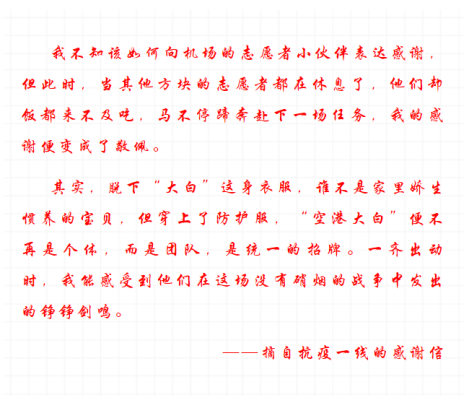 我不知该如何向机场的志愿者小伙伴表达感谢，
但此时，当其他方块的志愿者都在休息了，他们却
饭都来不及吃，马不停蹄奔赴下一场任务，我的感
谢便变成了敬佩。
其实，脱下“大白”这身衣服，谁不是家里娇生
惯养的宝贝，但穿上了防护服，“空港大白”便不
再是个体，而是团队，是统一的招牌。一齐出动
时，我能感受到他们在这场没有硝烟的战争中发出
的铮铮剑鸣。
——摘自抗疫一线的感谢信